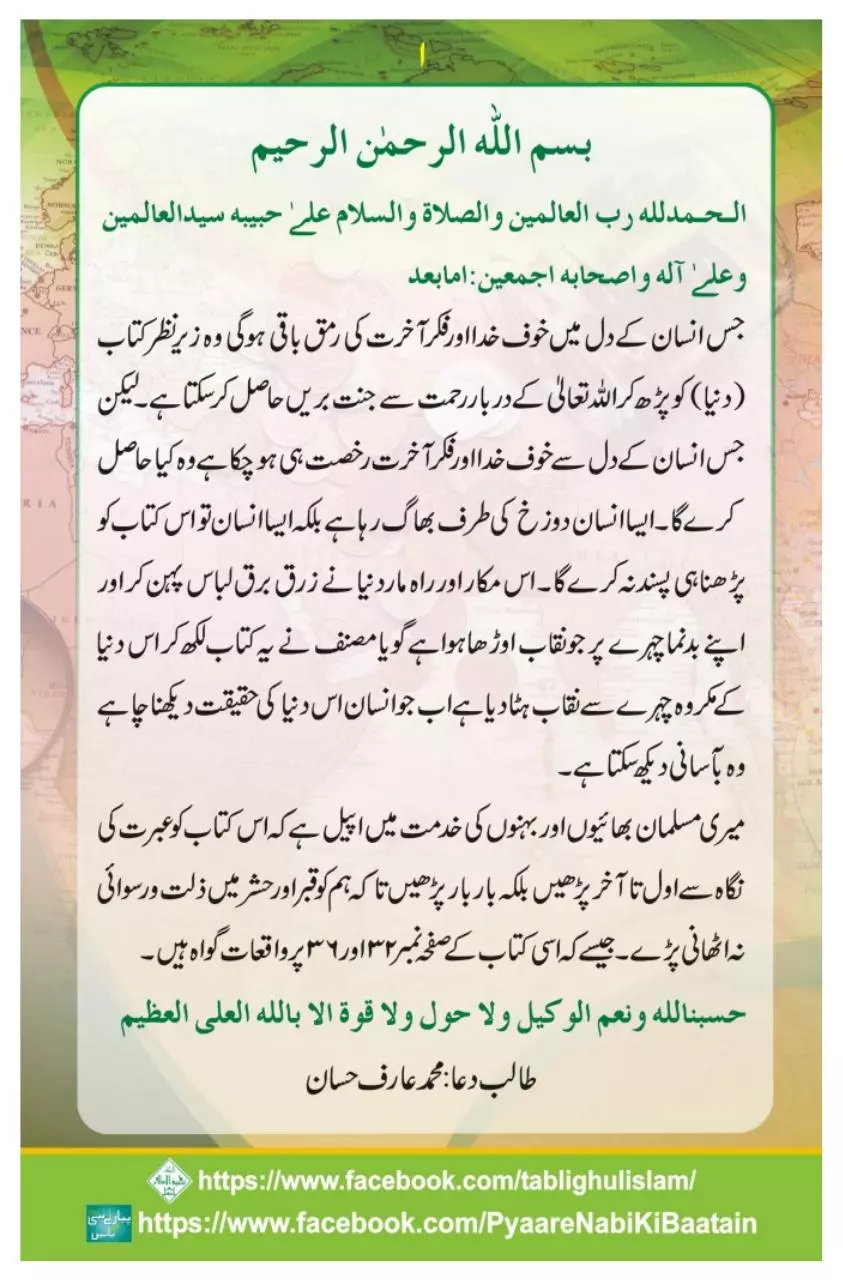 ۱
بسم الله الرحمٰن الرحيم
الحمدلله رب العالمين والصلاة والسلام علےٰ حبيبه سيدالعالمين
وعلےٰ آله واصحابه اجمعين:امابعد
جس انسان کے دل میں خوف خدا اور فکر آخرت کی رمق باقی ہوگی وہ زیرنظر کتاب
(دنیا) کو پڑھ کر اللہ تعالیٰ کے دربار رحمت سے جنت بریں حاصل کر سکتا ہے۔ لیکن
جس انسان کے دل سے خوف خدا اور فکر آخرت رخصت ہی ہو چکا ہے وہ کیا حاصل
کرے گا۔ ایسا انسان دوزخ کی طرف بھاگ رہا ہے بلکہ ایسا انسان تو اس کتاب کو
پڑھنا ہی پسند نہ کرے گا۔ اس مکار اور راہ مار دنیا نے زرق برق لباس پہن کر اور
اپنے بدنما چہرے پر جو نقاب اوڑھا ہوا ہے گویا مصنف نے یہ کتاب لکھ کر اس دنیا
کے مکروہ چہرے سے نقاب ہٹا دیا ہے اب جو انسان اس دنیا کی حقیقت دیکھنا چاہے
وہ بآسانی دیکھ سکتا ہے۔
میری مسلمان بھائیوں اور بہنوں کی خدمت میں اپیل ہے کہ اس کتاب کو عبرت کی
نگاہ سے اول تا آخر پڑھیں بلکہ بار بار پڑھیں تاکہ ہم کو قبر اور حشر میں ذلت و رسوائی
نہ اٹھانی پڑے۔ جیسے کہ اسی کتاب کے صفحہ نمبر ۳۲ اور ۳۶ پر واقعات گواہ ہیں۔
حسبنالله ونعم الوكيل ولا حول ولا قوة الا بالله العلى العظيم
طالب دعا: محمد عارف حسان
https://www.facebook.com/tablighulislam/
https://www.facebook.com/PyaareNabiKiBaatain